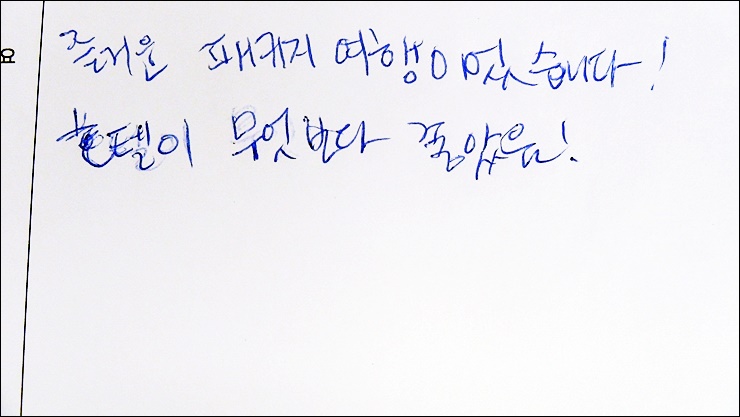 요
즐거운 패키지 여행이었습니다!
호텔이 무엇보다 좋았음!